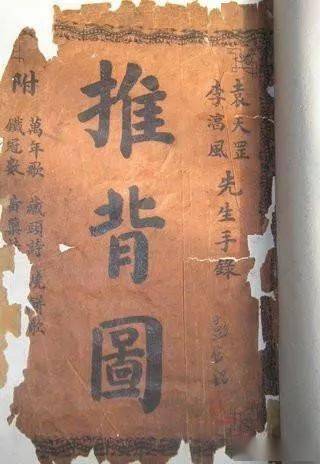 袁天罡
李淳風
先生手錄
推背圖
附
萬年歌 藏頭詩 燒餅歌
鐵冠數